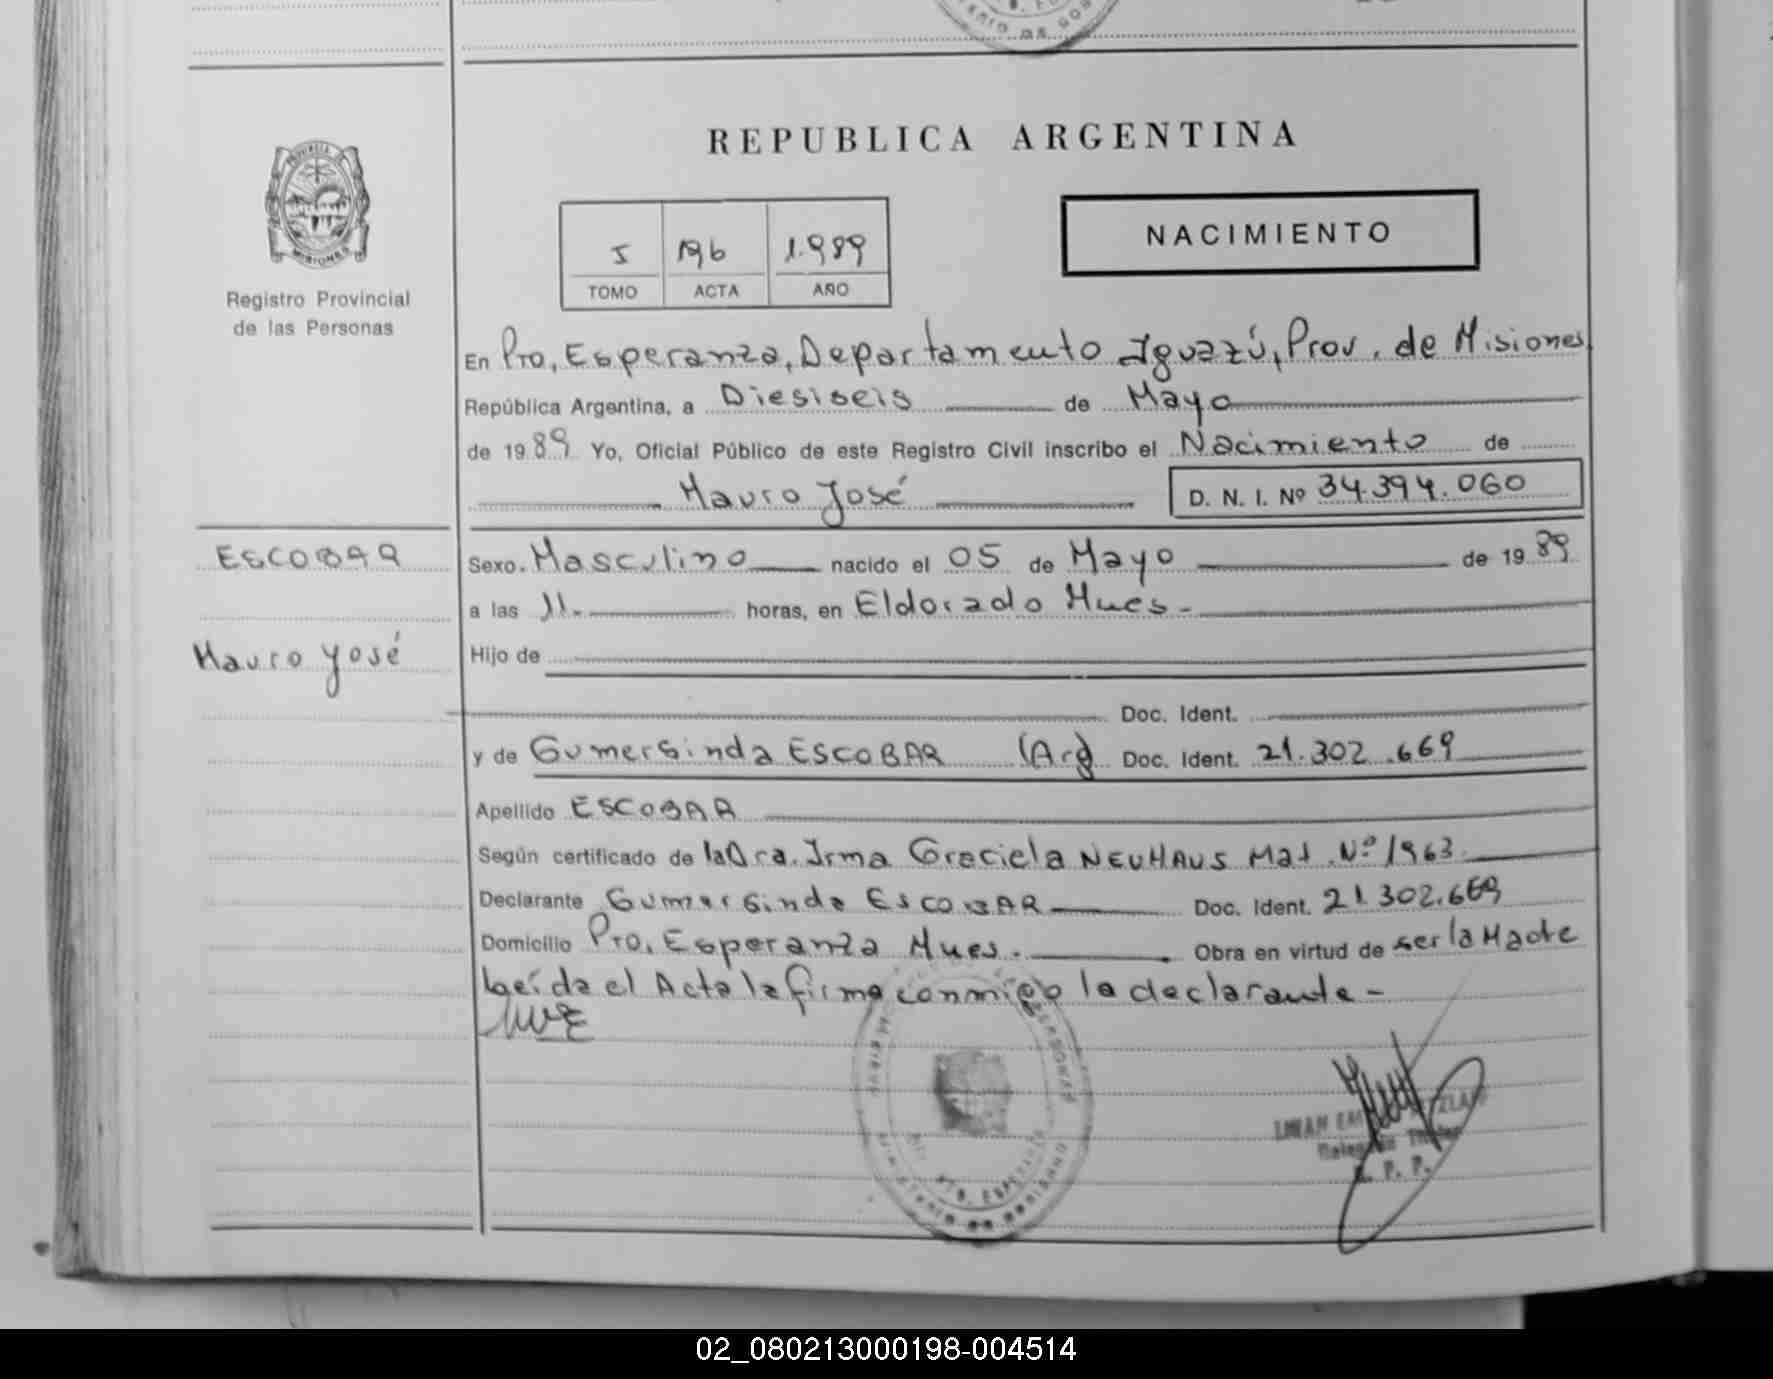 REPUBLICA ARGENTINA
NACIMIENTO
PROVINCIA DE
MISIONES
Registro Provincial
de las Personas
I 196 1.989
TOMO ACTA AÑO
En Pto, Esperanza, Departamento Iguazú, Prov. de Misiones
República Argentina, a Diesiseis de Mayo
de 1989 Yo, Oficial Público de este Registro Civil inscribo el Nacimiento de
Mauro José D. N. I. Nº 34.394.060
ESCOBAR
Mauro José
Sexo. Masculino nacido el 05 de Mayo de 1989
a las 11. horas, en Eldorado Mnes.
Hijo de
Doc. Ident.
y de Gumersinda ESCOBAR (Arg) Doc. Ident. 21.302.669
Apellido ESCOBAR
Según certificado de la Dra. Irma Graciela NEUHAUS Mat. Nº 1963.
Declarante Gumersinda ESCOBAR Doc. Ident. 21.302.669
Domicilio Pto. Esperanza Mnes. Obra en virtud de ser la Madre
Leída el Acta la firma conmigo la declarante -
R. P. P.
02_080213000198-004514